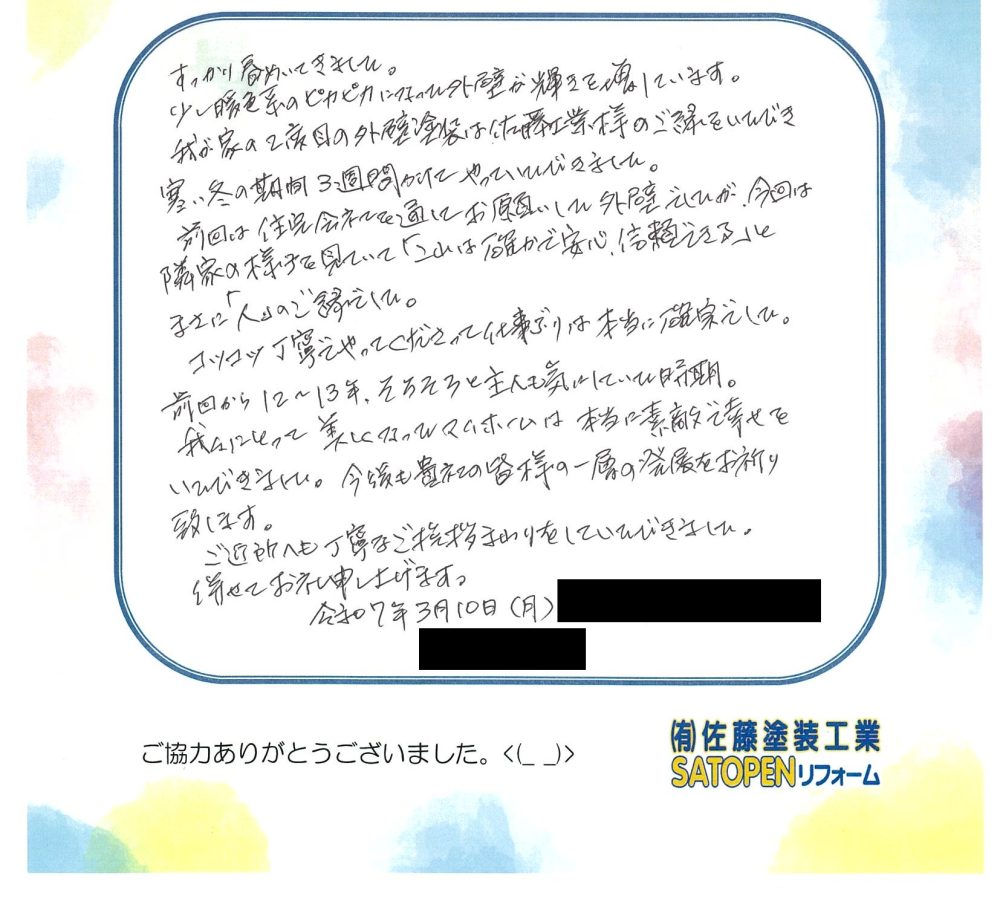 すっかり春めいてきました。
少し暖色系のピカピカになった外壁が輝きを増しています。
我が家の2度目の外壁塗装は佐藤工業様のご縁をいただき
寒い冬の期間3週間かけてやっていただきました。
前回は住宅会社を通してお願いした外壁でしたが、今回は
隣家の様子を見ていて「これは確かで安心、信頼できる」と
まさに「人」のご縁でした。
コツコツ丁寧にやってくださって仕事ぶりは本当に確実でした。
前回から12〜13年、そろそろと主人も気にしていた時期。
我々にとって美しくなったマイホームは本当に素敵で幸せを
いただきました。今後も貴社の皆様の一層の発展をお祈り
致します。
ご近所へも丁寧なご挨拶まわりをしていただきました。
併せてお礼申し上げます。
令和7年3月10日(月)
ご協力ありがとうございました。<(_ _)>
(有)佐藤塗装工業
SATOPENリフォーム